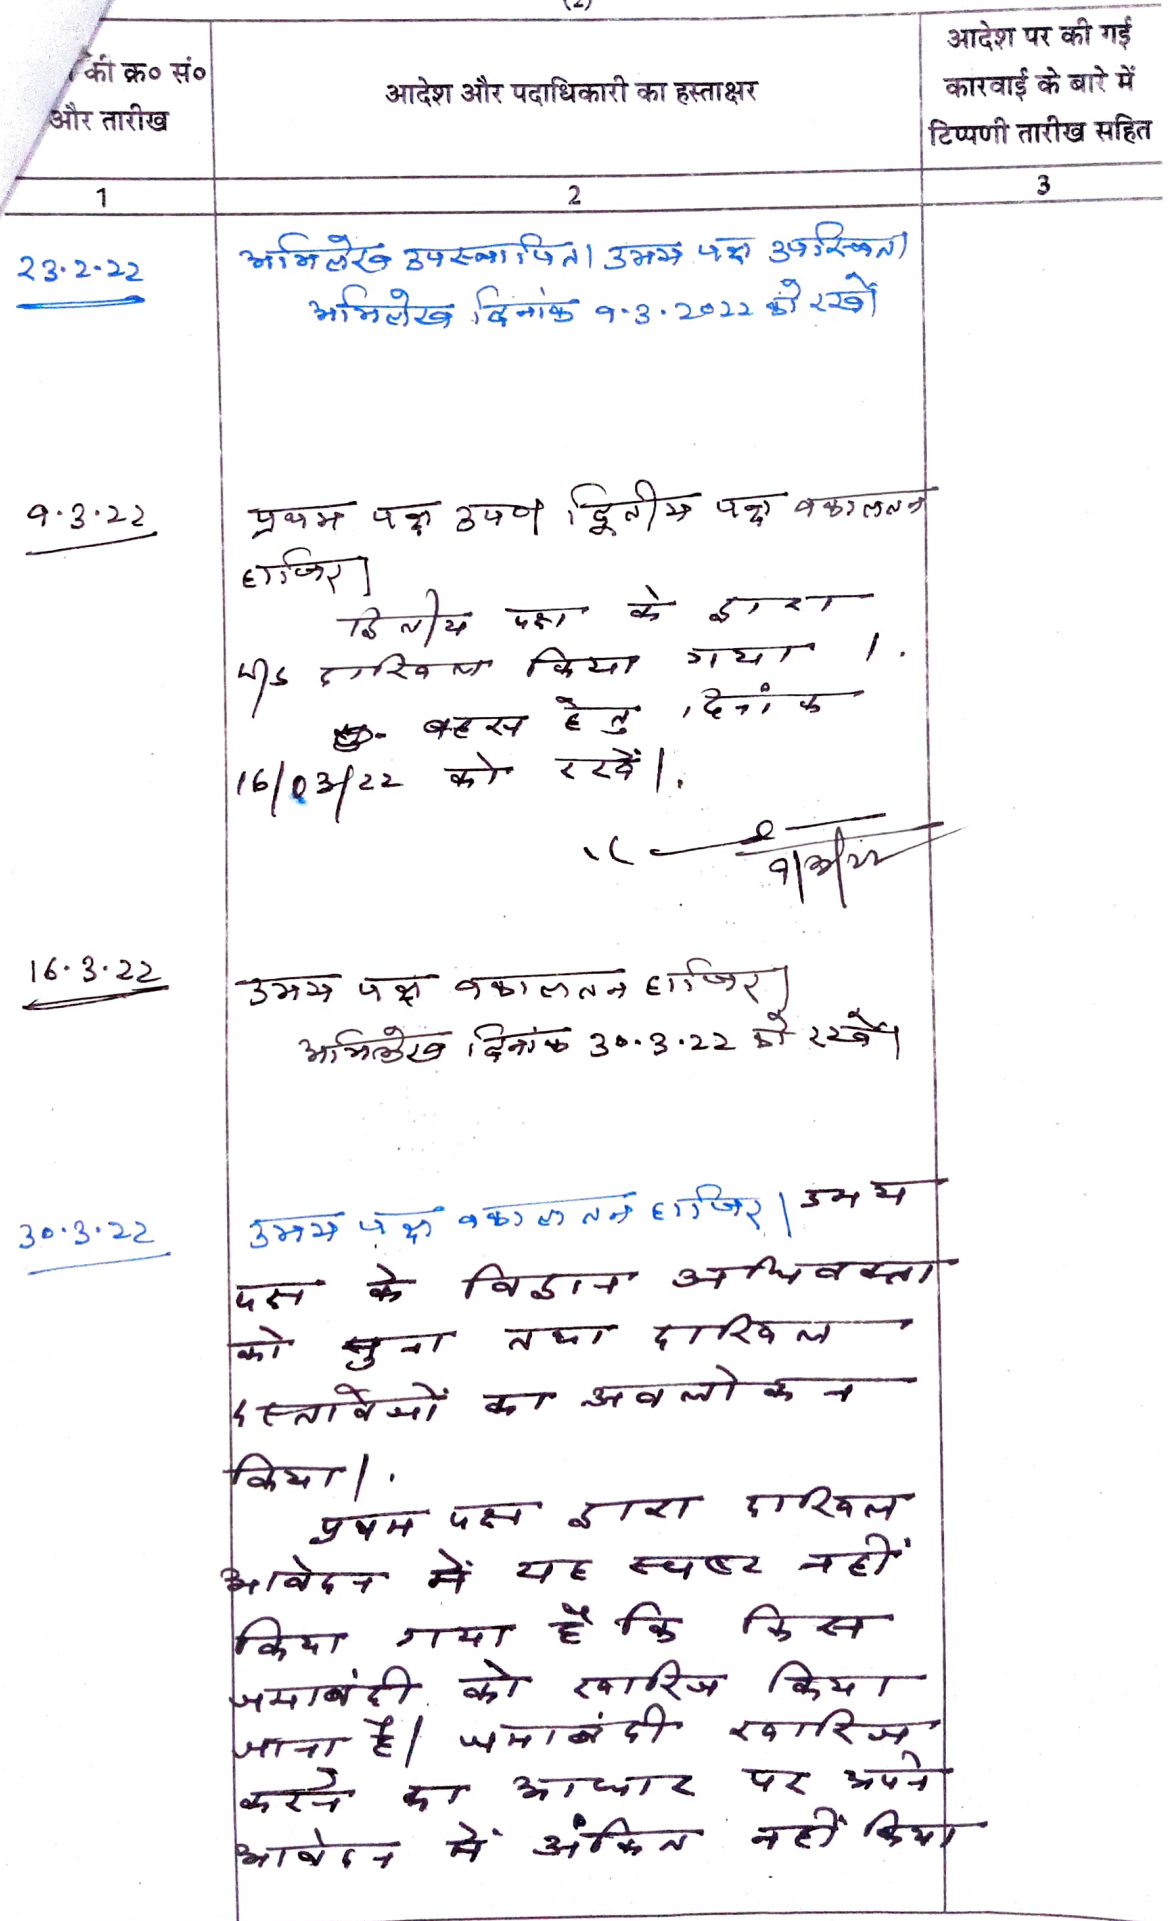 (2)
की क्र० सं०
और तारीख
आदेश और पदाधिकारी का हस्ताक्षर
आदेश पर की गई
कारवाई के बारे में
टिप्पणी तारीख सहित
1
2
3
23.2.22
अभिलेख उपस्थापित। उभय पक्ष उपस्थित।
अभिलेख दिनांक 9.3.2022 को रखें।
9.3.22
प्रथम पक्ष उप०। द्वितीय पक्ष वकालतन
हाजिर।
द्वितीय पक्ष के द्वारा
W/S दाखिल किया गया।
बहस हेतु दिनांक
16/03/22 को रखें।
9/3/22
16.3.22
उभय पक्ष वकालतन हाजिर।
अभिलेख दिनांक 30.3.22 को रखें।
30.3.22
उभय पक्ष वकालतन हाजिर। उभय
पक्ष के विद्वान अधिवक्ता
को सुना तथा दाखिल
दस्तावेजों का अवलोकन
किया।
प्रथम पक्ष द्वारा दाखिल
आवेदन में यह स्पष्ट नहीं
किया गया है कि किस
जमाबंदी को खारिज किया
जाना है। जमाबंदी खारिज
करने का आधार पर अपने
आवेदन में अंकित नहीं किया